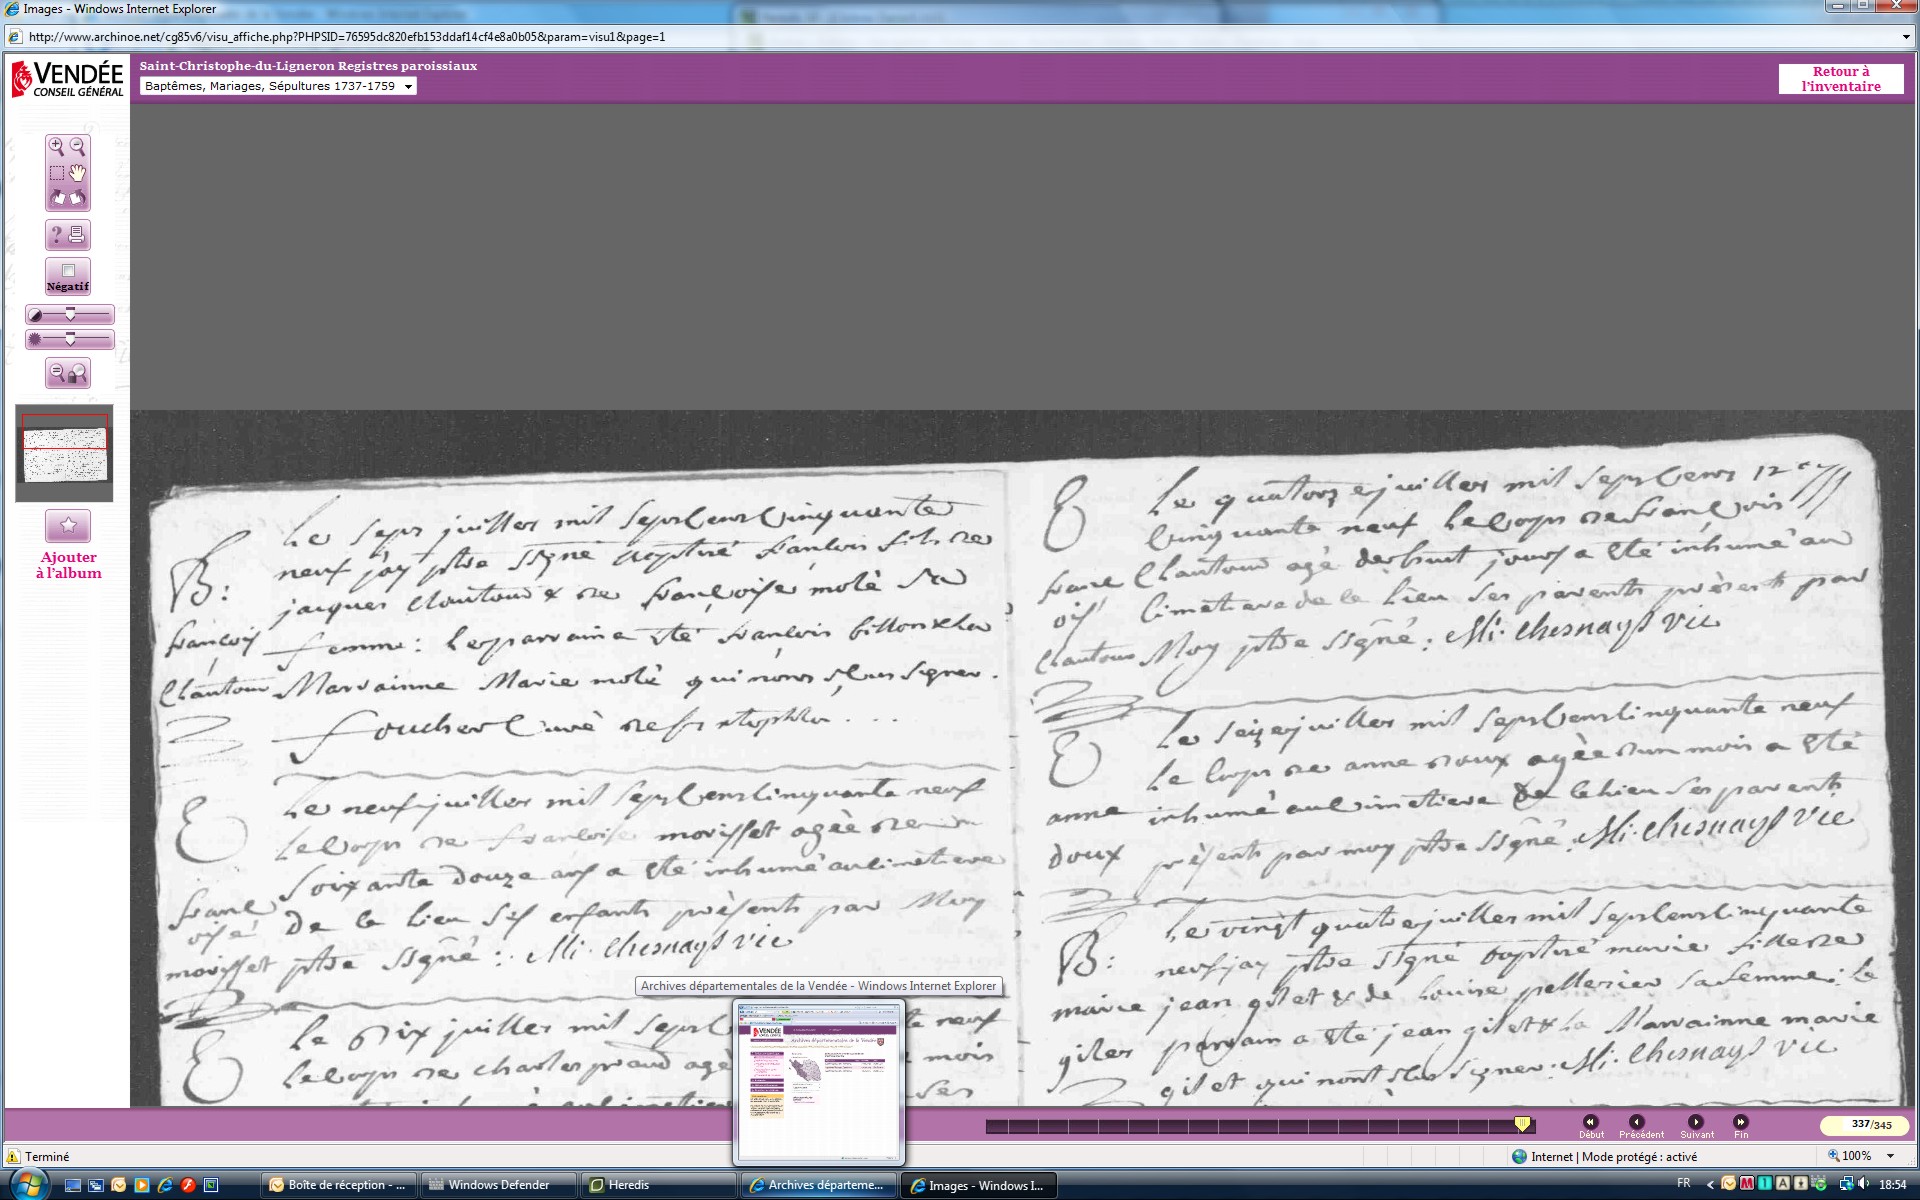 Images - Windows Internet Explorer
http://www.archinoe.net/cg85v6/visu_affiche.php?PHPSID=76595dc820efb153ddaf14cf4e8a0b05&param=visu1&page=1
VENDÉE
CONSEIL GÉNÉRAL
Saint-Christophe-du-Ligneron Registres paroissiaux
Baptêmes, Mariages, Sépultures 1737-1759
Retour à
l'inventaire
Négatif
Ajouter
à l'album
Le sept juillet mil sept cens cinquante
neuf j'ay ptre ssgné baptisé françois fils de
jacques Chantoux & de françoise molé sa
femme: le parrain a été françois billon & la
Marrainne Marie molé qui n'ont sçu signer.
foucher Curé de st xtophle...
B:
françois
Chantoux
Le neuf juillet mil sept cens cinquante neuf
le corps de françoise morisset agée de
soixante douze ans a été inhumé au cimetiere
de ce lieu ses enfants présents par Moy
ptre ssgné: Mi. Chesnays vic
E
franç
oise
morisset
Le six juillet mil sept neuf
le corps de charles praud agé mois
E
Le quatorze juillet mil sept cens
cinquante neuf le corps de françois
Chantoux agé de huit jours a été inhumé au
Cimetiere de ce lieu ses parents présents par
Moy ptre ssgné: Mi. Chesnays vic
E
franç
ois
Chantoux
Le seize juillet mil sept cens cinquante neuf
le corps de anne doux agée d'un mois a été
inhumé au cimetiere de ce lieu ses parents
présents par moy ptre ssgné. Mi. Chesnays vic
E
anne
doux
Le vingt quatre juillet mil sept cens cinquante
neuf jay ptre ssgné baptisé marie fille de
jean gilet & de Louise pelletier sa femme: le
parain a été jean gilet & la Marrainne marie
gilet qui n'ont sçu signer: Mi. Chesnays vic
B:
marie
Archives départementales de la Vendée - Windows Internet Explorer
VENDÉE
Archives départementales de la Vendée
Début
Précédent
Suivant
Fin
337/345
Terminé
Internet | Mode protégé : activé
100%
Boîte de réception - ...
Windows Defender
Heredis
Archives départeme...
Images - Windows I...
FR
18:54